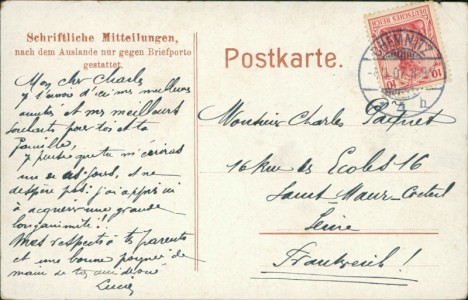 Schriftliche Mitteilungen,
nach dem Auslande nur gegen Briefporto
gestattet.
Postkarte.
DEUTSCHES REICH
10
CHEMNITZ
Mon cher Charle
je t'envoi d'ici mes meilleures
amitiés et mes meilleurs
souhaits pour toi et ta
famille,
je pense que tu m'écriras
un de ces jours, et ne
désespère pas: j'ai appris ici
à acquérir une grande
longanimité!
Mes respects à tes parents
et une bonne poignée de
main de ton ami dévoué
Lucien
Monsieur Charles
16 Rue des Ecoles 16
Saint-Maur-Creteil
Seine
Frankreich!